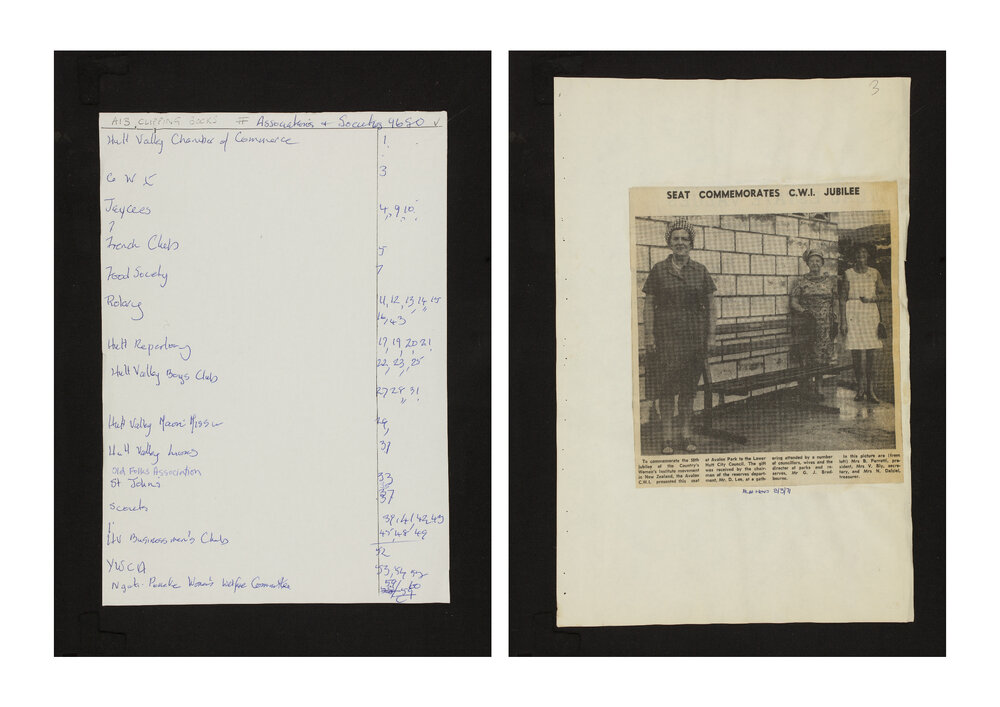 A13 CLIPPING BOOKS # Associations + Societies 9680 ✓
Hutt Valley Chamber of Commerce 1
3
Jaycees 4, 9, 10
?
French Club 5
Food Society 7
Rotary 11, 12, 13, 14, 15
16, 43
Hutt Repertory 17, 19, 20 21
22, 23, 25
Hutt Valley Boys Club
27 28, 31
Hutt Valley Maori
Hutt Valley
Old Folks Association
St Johns 33
Scouts 37
42, 43
HV Businessmen's Club 47, 48, 49
52
YWCA 53, 54,
Women's Welfare Committee
3
SEAT COMMEMORATES C.W.I. JUBILEE
To commemorate the 50th
jubilee of the Country's
Women's Institute movement
in New Zealand, the Avalon
C.W.I. presented this seat
at Avalon Park to the Lower
Hutt City Council. The gift
was received by the chair-
man of the reserves depart-
ment, Mr. D. Lee, at a gath-
ering attended by a number
of councillors, wives and the
director of parks and re-
serves, Mr G. J. Brad-
bourne.
In this picture are (from
left) Mrs B. Perretti, pre-
sident, Mrs V. Bly, secre-
tary, and Mrs N. Dalziel,
treasurer.
NEWS